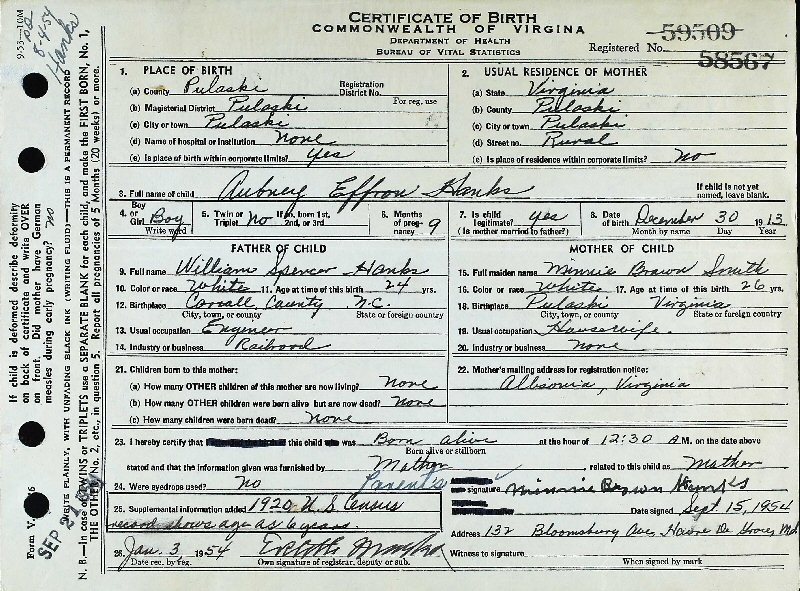 CERTIFICATE OF BIRTH
COMMONWEALTH OF VIRGINIA
DEPARTMENT OF HEALTH
BUREAU OF VITAL STATISTICS
Registered No. 59509
58567
9-53—10M
8-4-54
Hanks
1. PLACE OF BIRTH
(a) County Pulaski Registration District No.
(b) Magisterial District Pulaski For reg. use
(c) City or town Pulaski
(d) Name of hospital or institution None
(e) Is place of birth within corporate limits? Yes
2. USUAL RESIDENCE OF MOTHER
(a) State Virginia
(b) County Pulaski
(c) City or town Pulaski
(d) Street no. Rural
(e) Is place of residence within corporate limits? No
3. Full name of child Aubney Effron Hanks If child is not yet named, leave blank.
4. Boy or Girl Boy Write word
5. Twin or Triplet No If so, born 1st, 2nd, or 3rd
6. Months of pregnancy 9
7. Is child legitimate? Yes (Is mother married to father?)
8. Date of birth December 30 1913
Month by name Day Year
FATHER OF CHILD
9. Full name William Spencer Hanks
10. Color or race White 11. Age at time of this birth 24 yrs.
12. Birthplace Corrall, County N.C.
City, town, or county State or foreign country
13. Usual occupation Engineer
14. Industry or business Railrood
MOTHER OF CHILD
15. Full maiden name Minnie Brown Smith
16. Color or race White 17. Age at time of this birth 26 yrs.
18. Birthplace Pulaski Virginia
City, town, or county State or foreign country
19. Usual occupation Housewife.
20. Industry or business none
21. Children born to this mother:
(a) How many OTHER children of this mother are now living? None
(b) How many OTHER children were born alive but are now dead? None
(c) How many children were born dead? None
22. Mother's mailing address for registration notice:
Virginia
23. I hereby certify that this child was Born alive at the hour of 12:30 A.M. on the date above
Born alive or stillborn
stated and that the information given was furnished by Mother, related to this child as Mother
24. Were eyedrops used? No
Parent's signature Minnie Brown Hanks
25. Supplemental information added 1920 U.S Census
record shows age as 6 years.
Date signed Sept 15, 1954
Address 132 Bloomsbury Ave, Havre De Grace, Md.
26. Jan. 3 1954
Date rec. by reg. Own signature of registrar, deputy or sub.
Witness to signature
When signed by mark
If child is deformed describe deformity
on back of certificate and write OVER
on front. Did mother have German
measles during early pregnancy? no
WRITE PLAINLY, WITH UNFADING BLACK INK (WRITING FLUID)—THIS IS A PERMANENT RECORD
N. B.—In case of TWINS or TRIPLETS use a SEPARATE BLANK for each child, and make the FIRST BORN, No. 1,
THE OTHER No. 2, etc., in question 5. Report all pregnancies of 5 Months (20 weeks) or more.
Form V.
SEP 21